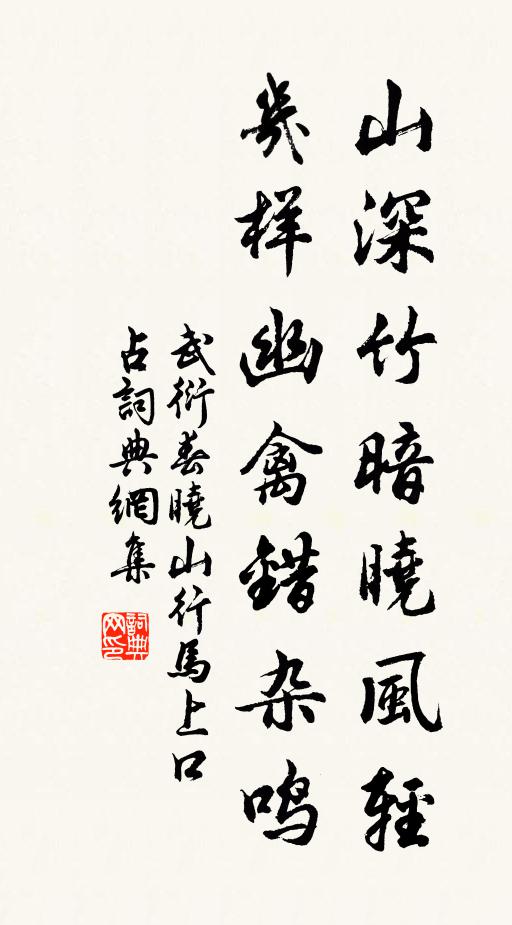 山深竹暗曉風輕
幾样幽禽錯杂鸣
武衍春曉山行馬上口
占詞典網集
詞典
网印